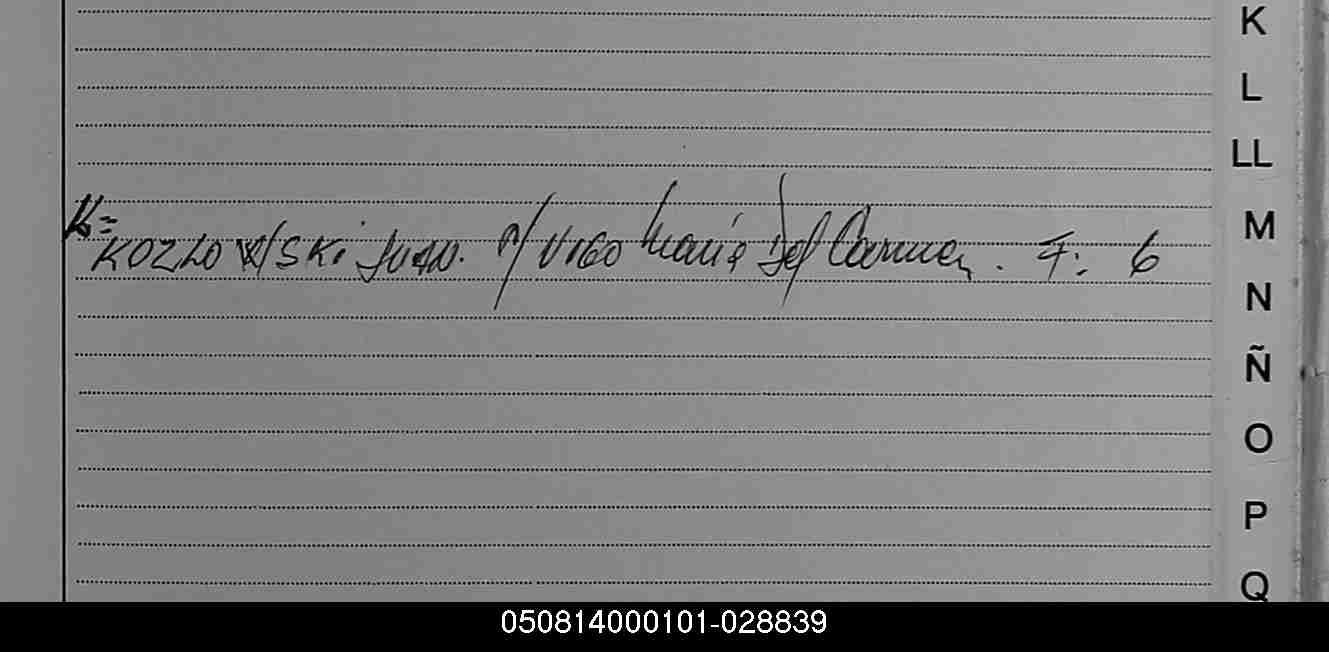 K
L
LL
K=
KOZLOWSKi JUAN. c/ VIGO María Del Carmen. F: 6
M
N
Ñ
O
P
Q
050814000101-028839